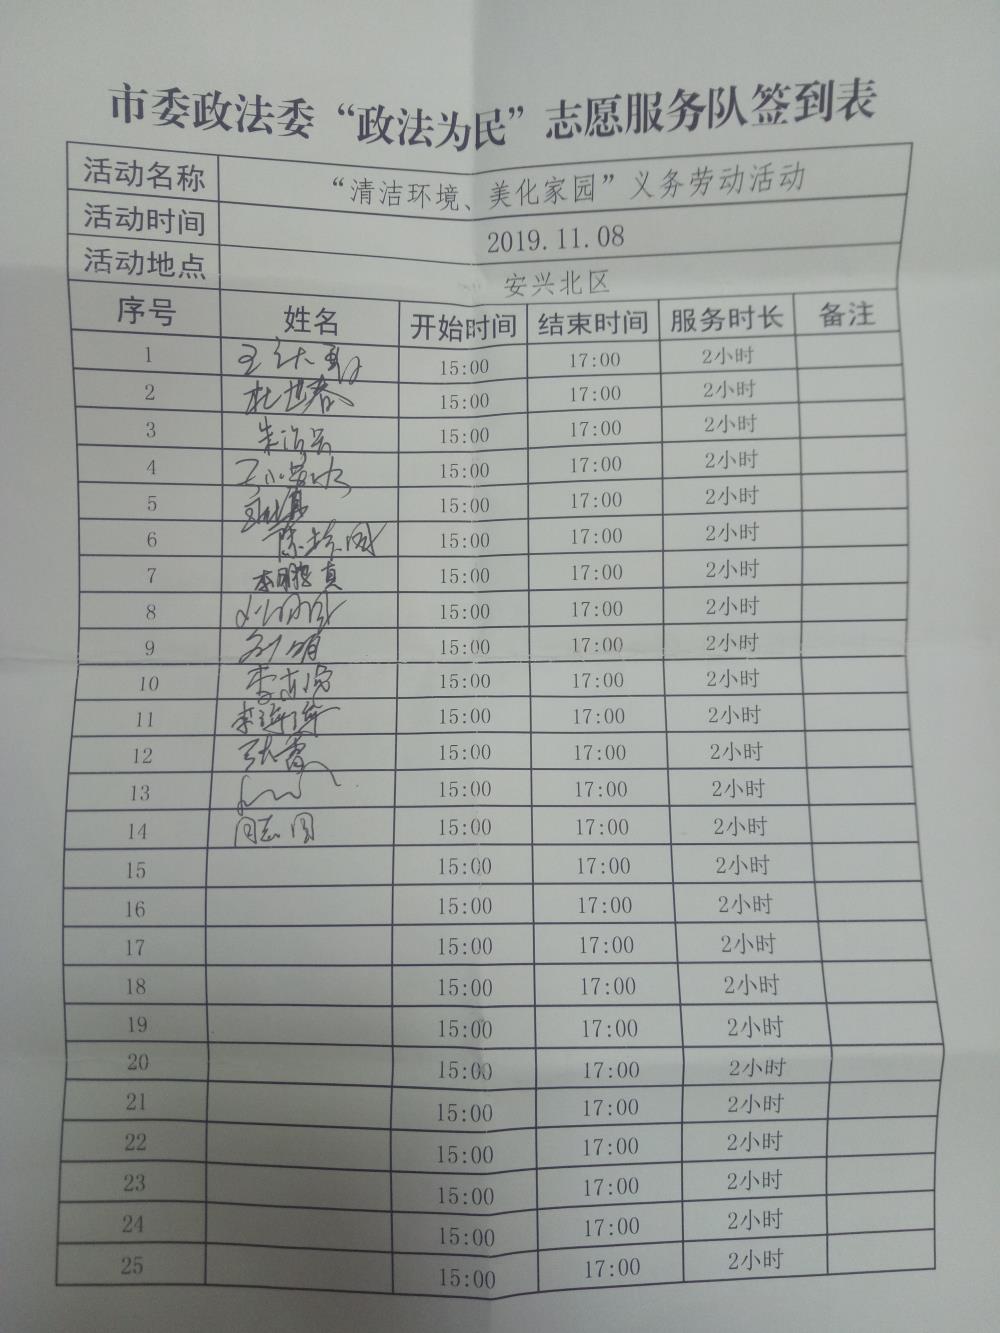 市委政法委“政法为民”志愿服务队签到表
活动名称 “清洁环境、美化家园”义务劳动活动
活动时间 2019.11.08
活动地点 安兴北区
序号 姓名 开始时间 结束时间 服务时长 备注
1 15:00 17:00 2小时
2 杜世春 15:00 17:00 2小时
3 15:00 17:00 2小时
4 15:00 17:00 2小时
5 15:00 17:00 2小时
6 15:00 17:00 2小时
7 李鹏真 15:00 17:00 2小时
8 15:00 17:00 2小时
9 刘明 15:00 17:00 2小时
10 15:00 17:00 2小时
11 15:00 17:00 2小时
12 张雷 15:00 17:00 2小时
13 15:00 17:00 2小时
14 15:00 17:00 2小时
15 15:00 17:00 2小时
16 15:00 17:00 2小时
17 15:00 17:00 2小时
18 15:00 17:00 2小时
19 15:00 17:00 2小时
20 15:00 17:00 2小时
21 15:00 17:00 2小时
22 15:00 17:00 2小时
23 15:00 17:00 2小时
24 15:00 17:00 2小时
25 15:00 17:00 2小时